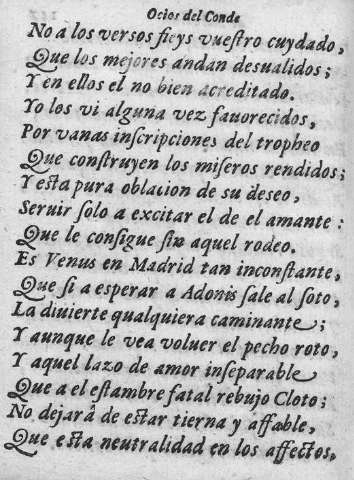 Ocios del Conde
No a los versos fieys vuestro cuydado,
Que los mejores andan desualidos;
Y en ellos el no bien acreditado.
Yo los vi alguna vez fauorecidos,
Por vanas inscripciones del tropheo
Que construyen los miseros rendidos;
Y esta pura oblacion de su deseo,
Seruir solo a excitar el de el amante:
Que le consigue sin aquel rodeo.
Es Venus en Madrid tan inconstante,
Que si a esperar a Adonis sale al soto,
La diuierte qualquiera caminante;
Y aunque le vea voluer el pecho roto,
Y aquel lazo de amor inseparable
Que a el estambre fatal rebujo Cloto;
No dejarâ de estar tierna y affable,
Que esta neutralidad en los affectos,